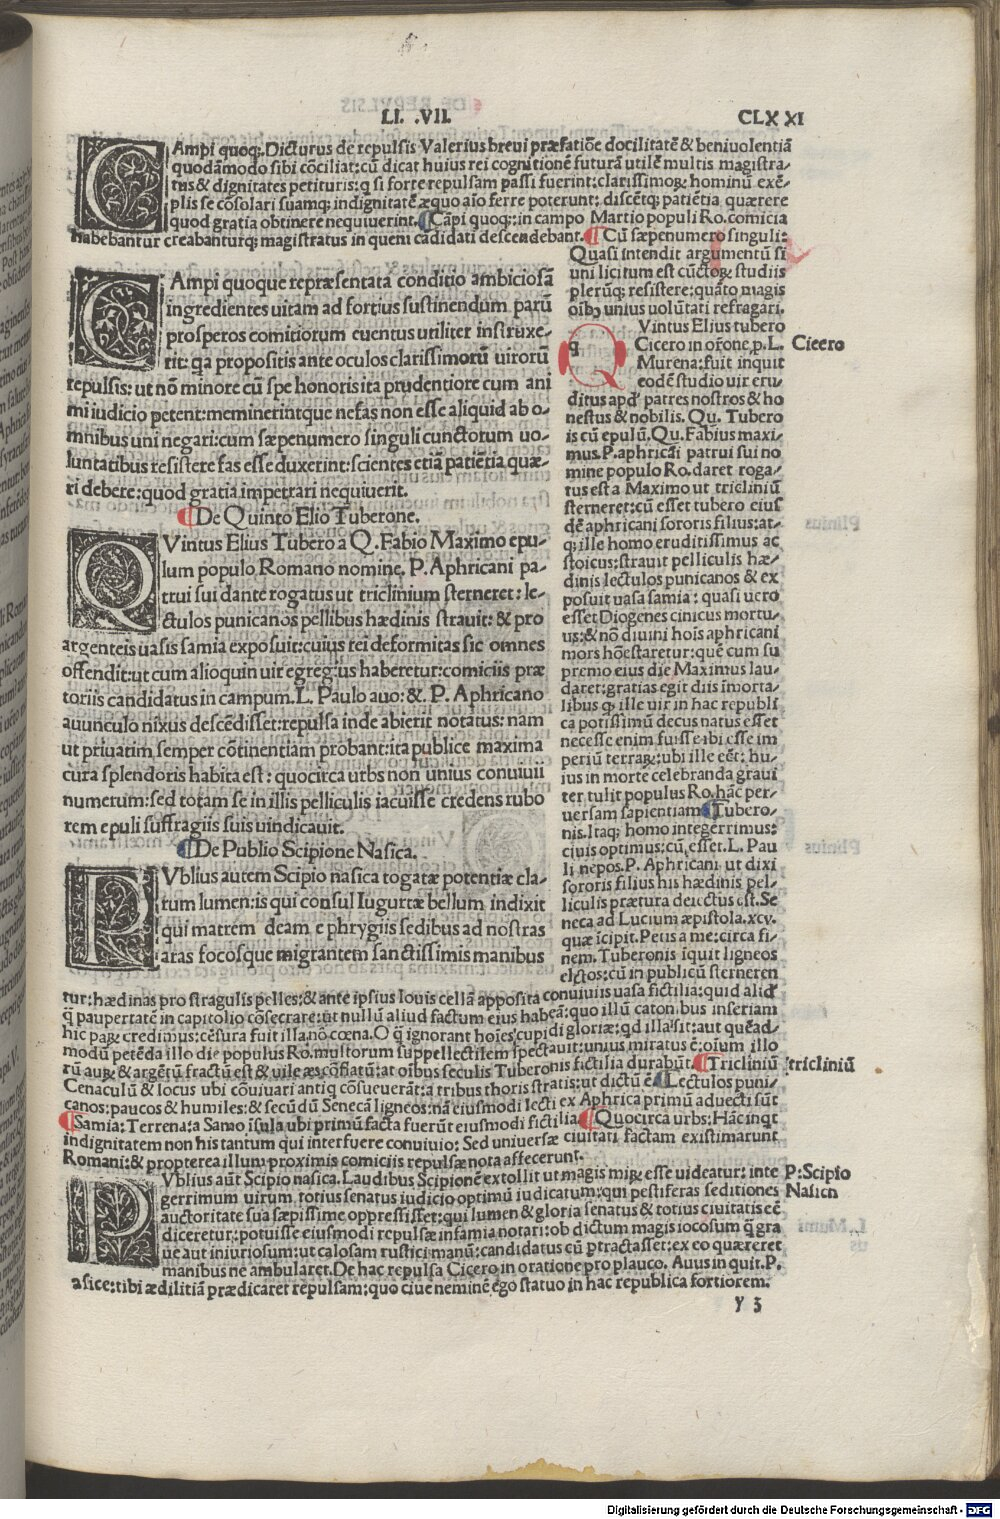 LI. .VII.
CLXXI
CAmpi quoq;. Dicturus de repulsis Valerius brevi præfatiōe docilitatē & benivolentiā
quodāmodo sibi cōciliat: cū dicat huius rei cognitionē futurā utilē multis magistra-
tus & dignitates petituris: q si forte repulsam passi fuerint: clarissimoꝝ hominū exē-
plis se cōsolari suamq; indignitatē æquo aīo ferre poterunt: discētq; patiētia quærere
quod gratia obtinere nequiuerint. Cāpi quoq;: in campo Martio populi Ro. comicia
habebantur creabanturq; magistratus in quem cādidati descendebant. Cū sæpenumero singuli:
CAmpi quoque repræsentata conditio ambiciosā
ingredientes uitam ad fortius sustinendum parū
prosperos comitiorum euentus utiliter instruxe-
rit: qa propositis ante oculos clarissimorū uirorū
repulsis: ut nō minore cū spe honoris ita prudentiore cum ani
mi iudicio petent: meminerintque nefas non esse aliquid ab o-
mnibus uni negari: cum sæpenumero singuli cunctorum uo-
luntatibus resistere fas esse duxerint: scientes etiā patiētia quæ-
ri debere: quod gratia impetrari nequiuerit.
De Quinto Elio Tuberone.
QVintus Elius Tubero a Q. Fabio Maximo epu-
lum populo Romano nomine. P. Aphricani pa-
trui sui dante rogatus ut triclinium sterneret: le-
ctulos punicanos pellibus hædinis strauit: & pro
argenteis uasis samia exposuit: cuius rei deformitas sic omnes
offendit: ut cum alioquin uir egregius haberetur: comiciis præ
toriis candidatus in campum. L. Paulo auo: &. P. Aphricano
auunculo nixus descēdisset: repulsa inde abierit notatus: nam
ut priuatim semper cōtinentiam probant: ita publice maxima
cura splendoris habita est: quocirca urbs non unius conuiuii
numerum: sed totam se in illis pelliculis iacuisse credens rubo
rem epuli suffragiis suis uindicauit.
De Publio Scipione Nasica.
PVblius autem Scipio nasica togatæ potentiæ cla-
rum lumen: is qui consul Iugurtæ bellum indixit
qui matrem deam e phrygiis sedibus ad nostras
aras focosque migrantem sanctissimis manibus
Quasi intendit argumentū si
uni licitum est cūctoꝝ studiis
plerūq; resistere: quāto magis
oībꝰ unius uolūtati refragari.
q
QVintus Elius tubero
Cicero in orōne. p. L.
Murena: fuit inquit
eodē studio uir eru/
ditus apd' patres nostros & ho
nestus & nobilis. Qu. Tubero
is cū epulū. Qu. Fabius maxi-
mus. P. aphricāi patrui sui no
mine populo Ro. daret roga-
tus est a Maximo ut tricliniū
sterneret: cū esset tubero eius
dē aphricani sororis filius: at-
q; ille homo eruditissimus ac
stoicus: strauit pelliculis hæ-
dinis lectulos punicanos & ex
posuit uasa samia: quasi uero
esset Diogenes cinicus mortu-
us: & nō diuini hoīs aphricani
mors hōestaretur: quē cum su
premo eius die Maximus lau-
daret: gratias egit diis īmorta-
libus q ille uir in hac republi
ca potissimū decus natus esset
necesse enim fuisse ibi esse im
periū terraꝝ: ubi ille eēt: hu-
ius in morte celebranda graui
ter tulit populus Ro. hāc per-
uersam sapientiam Tubero-
nis. Itaq; homo integerrimus:
ciuis optimus: cū esset. L. Pau
li nepos. P. Aphricani ut dixi
sororis filius his hædinis pel-
liculis prætura deiectus est. Se
neca ad Lucium æpistola. xcv.
quæ īcipit. Petis a me: circa fi-
nem. Tuberonis īquit ligneos
elctos: cū in publicū sterneren
tur: hædinas pro stragulis pelles: & ante ipsius Iouis cellā apposita conuiuiis uasa fictilia: quid aliđ
q̄ paupertatē in capitolio cōsecrare: ut nullū aliud factum eius habeā: quo illū catonibus inseriam
hic paꝝ credimus: cēsura fuit illa. nō cœna. O q̄ ignorant hoīes cupidi gloriæ: qd illa sit: aut quēad-
modū petēda illo die populus Ro. multorum suppellectilem spectauit: unius miratus ē: oīum illo
rū auꝝ & argētū fractū est & uile æs cōflatū: at oībus seculis Tuberonis fictilia durabūt. Tricliniū
Cenaculū & locus ubi cōuiuari antiq cōsueuerāt: a tribus thoris stratis: ut dictū ē. Lectulos puni-
canos: paucos & humiles: & secūdū Senecā ligneos: nā eiusmodi lecti ex Aphrica primū aduecti sūt
Samia: Terrena: a Samo īsula ubi primū facta fuerūt eiusmodi fictilia. Quocirca urbs: Hāc inqt
indignitatem non his tantum qui interfuere conuiuio: Sed uniuersæ ciuitati factam existimarunt
Romani: & propterea illum proximis comiciis repulsæ nota affecerunt.
PVblius aūt Scipio nasica. Laudibus Scipionē extollit ut magis miꝝ esse uideatur: inte
gerrimum uirum totius senatus iudicio optimū iudicatum: qui pestiferas seditiones
auctoritate sua sæpissime oppressisset: qui lumen & gloria senatus & totius ciuitatis eē
diceretur: potuisse eiusmodi repulsæ infamia notari: ob dictum magis iocosum q̄ gra
ue aut iniuriosum: ut calosam rustici manū: candidatus cū ptractasset: ex eo quæreret
manibus ne ambularet. De hac repulsa Cicero in oratione pro plauco. Auus inquit. P.
asice: tibi ædilitiā prædicaret repulsam: quo ciue neminē ego statuo in hac republica fortiorem.
Cicero
tricliniū
P: Scipio
Nasica
y 3
Digitalisierung gefördert durch die Deutsche Forschungsgemeinschaft - DFG